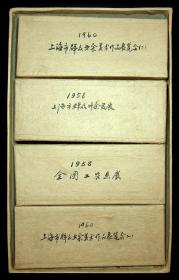 1960
上海市群众业余美术作品展览会(二)
1956
上海市群众
1958
全国工农画展
1960
上海市群众业余美术作品展览会(一)